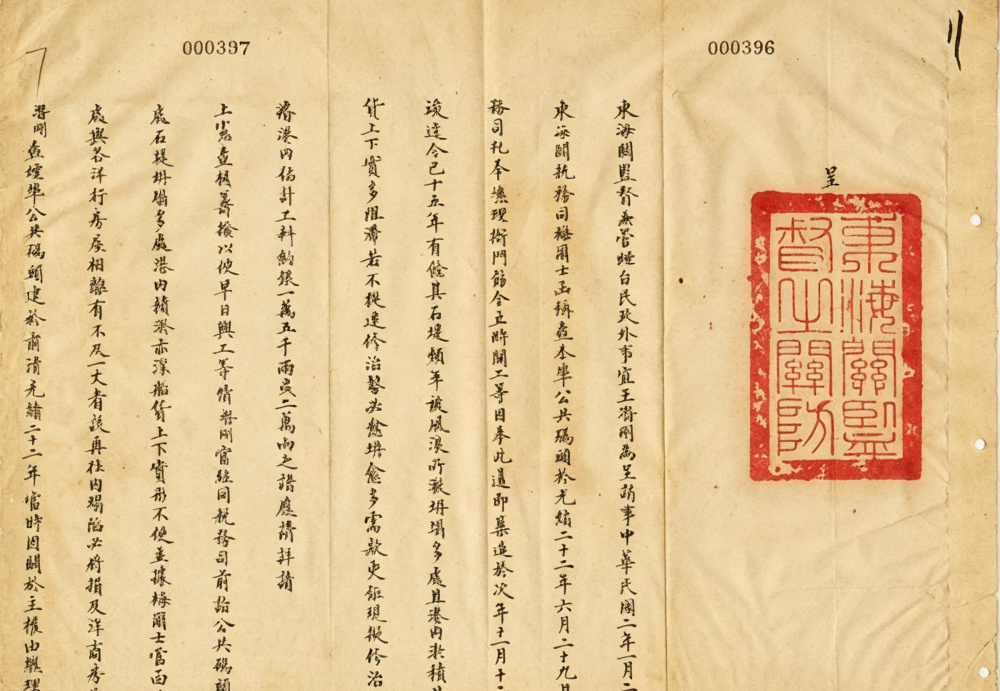 000396
000397
呈
東海關監
督之關防
東海關監督兼管煙台民政外事宜王潛剛為呈請事中華民國二年一月二
東海關稅務司梅爾士函稱查本埠公共碼頭於光緒二十二年六月二十九日
務司札奉總理衙門飭令立時開工等因奉此遵即集造於次年十一月十二
竣迄今已十五年有餘其石堤頻年被風浪所激坍塌多處且港內淤積
貨上下實多阻滯若不從速修治誠必愈坍愈多需款更鉅現擬修治
濬港內估計工料約銀一萬五千兩或二萬兩之譜應請拜請
上小心查核籌撥以便早日興工等情潛剛當經同稅務司前詣公共碼頭
處石堤坍塌多處港內積淤亦深船貨上下實形不便並據梅爾士當面
處與各洋行房屋相離有不及一丈者設再往內塌陷必將損及洋商房
潛剛查煙埠公共碼頭建於前清光緒二十二年當時因關於主權由總理